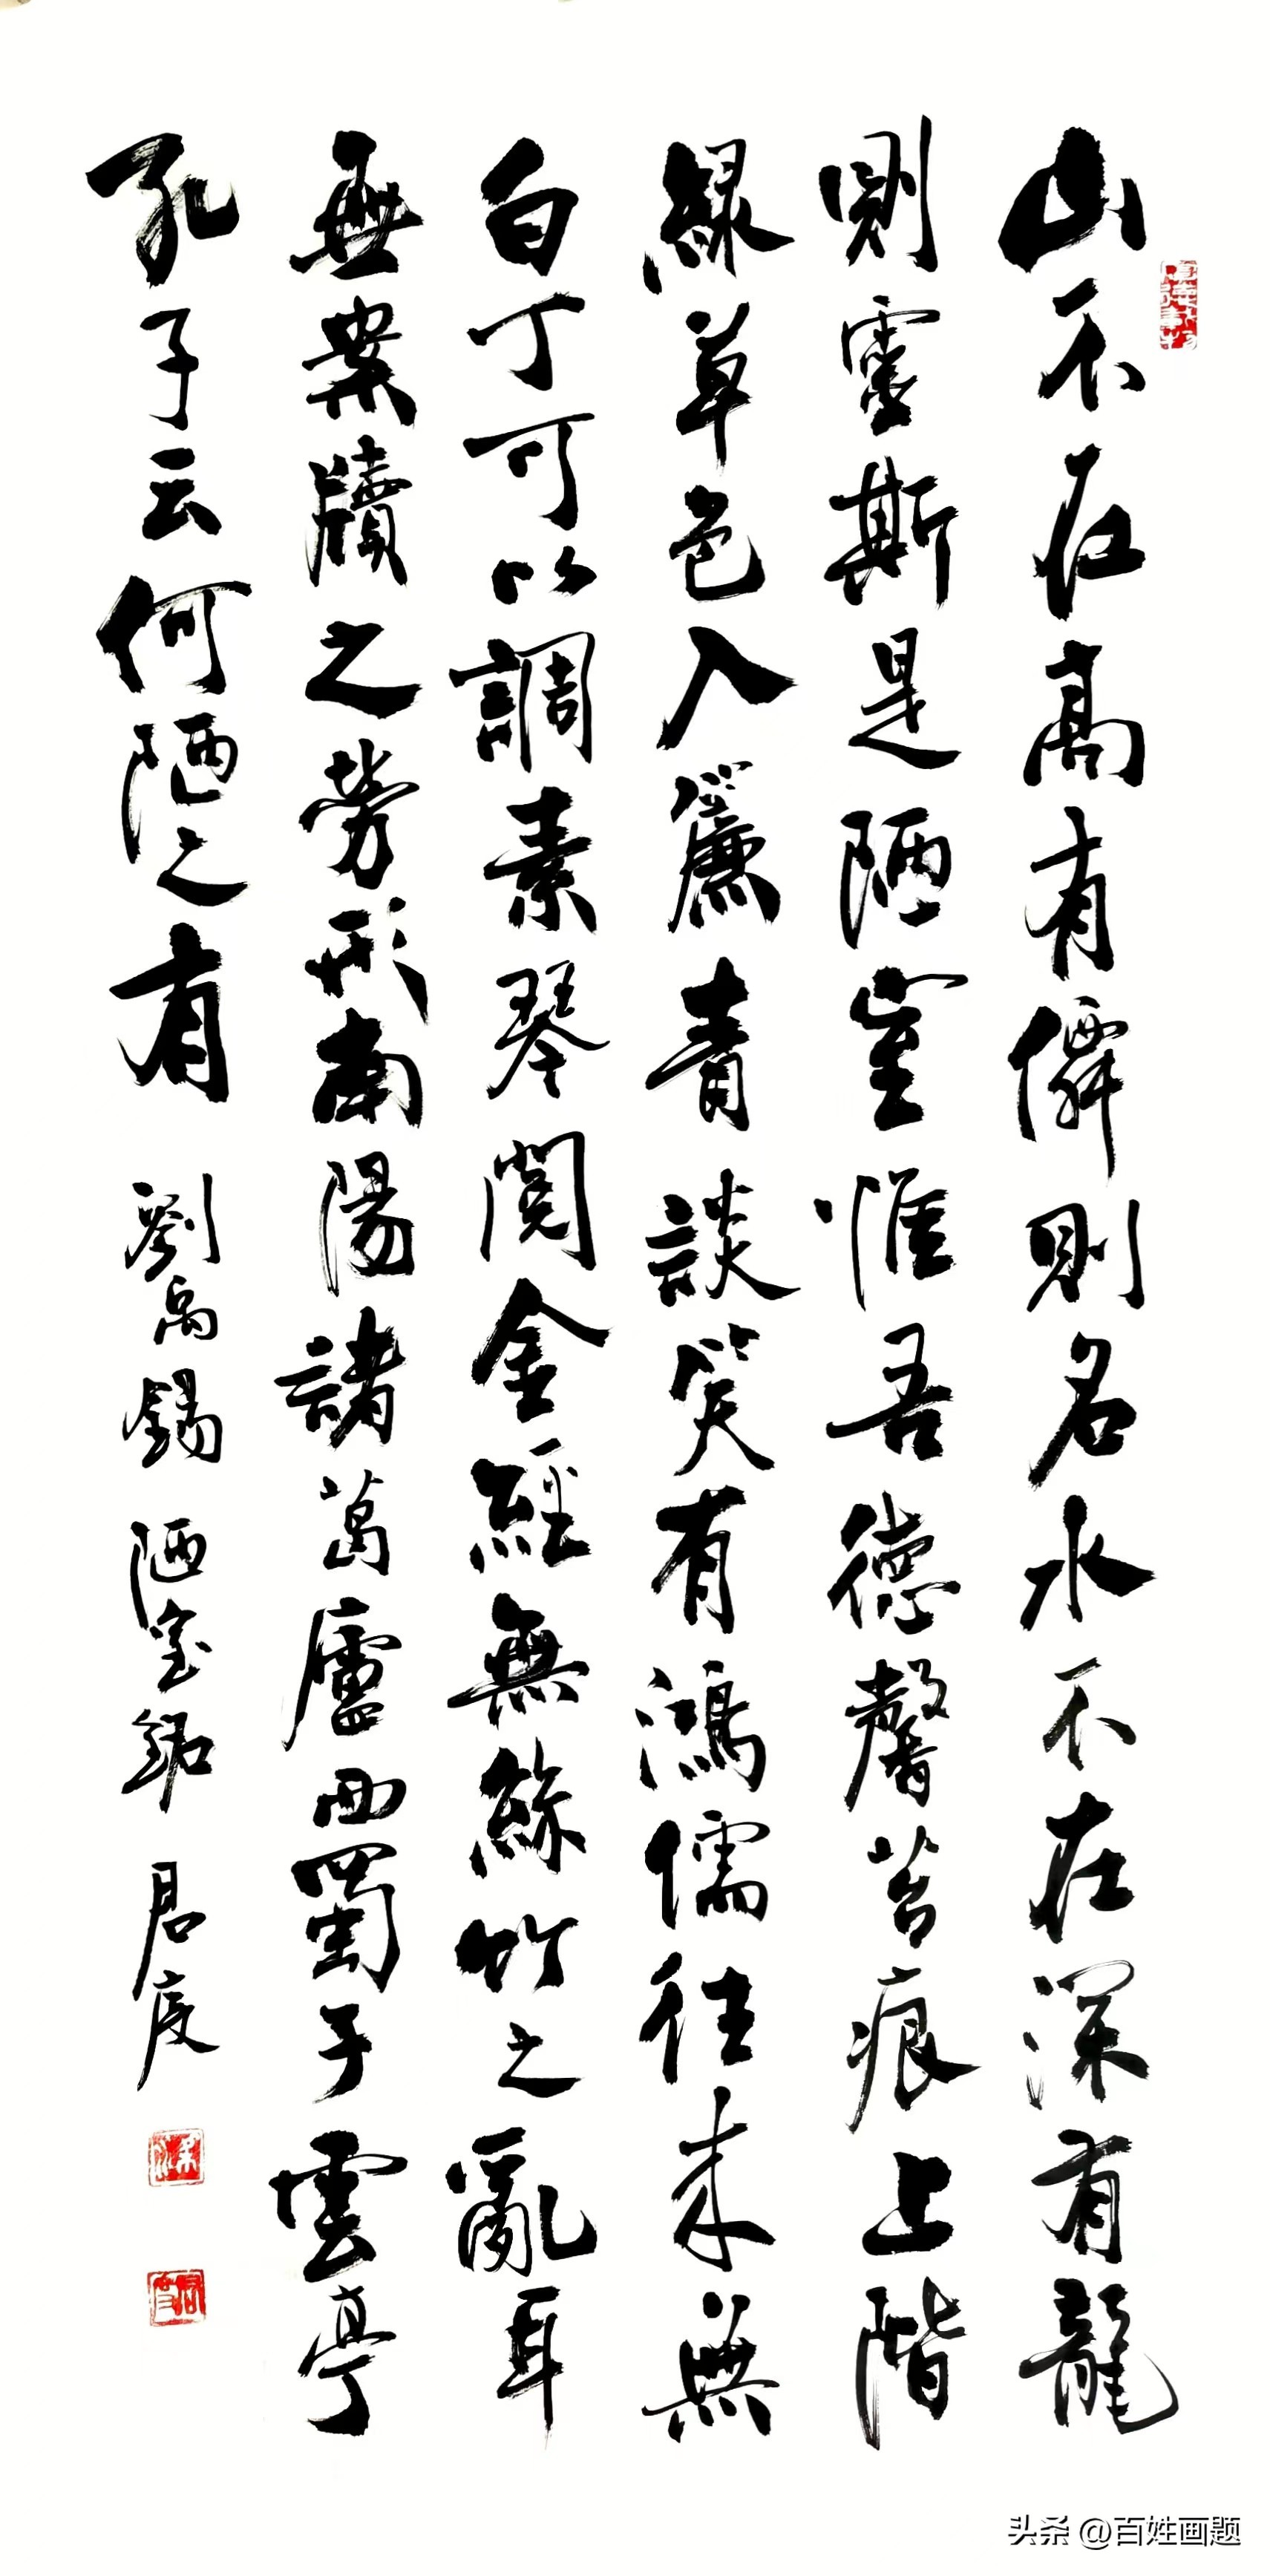 山不在高有僊則名水不在深有龍
則靈斯是陋室惟吾德馨苔痕上階
緑草色入簾青談笑有鴻儒往来無
白丁可以調素琴閲金經無絲竹之亂耳
無案牘之勞形南陽諸葛廬西蜀子雲亭
孔子云何陋之有 劉禹錫 陋室銘 君度
头条 @百姓画题